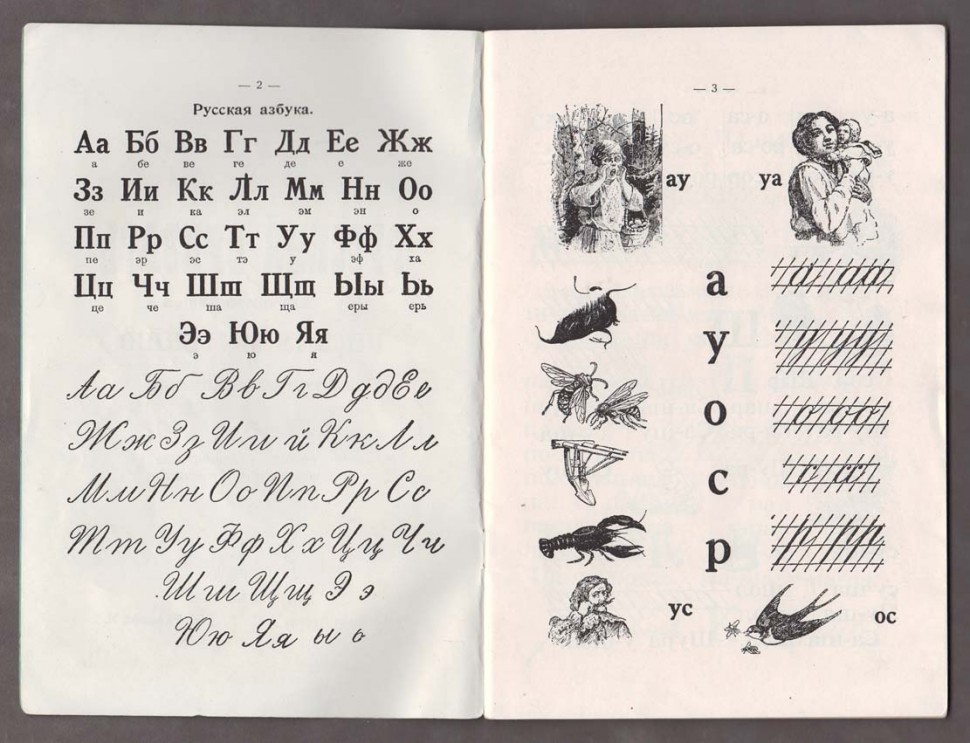 — 2 —
Русская азбука.
Аа Бб Вв Гг Дд Ее Жж
а бе ве ге де е же
Зз Ии Кк Лл Мм Нн Оо
зе и ка эл эм эн о
Пп Рр Сс Тт Уу Фф Хх
пе эр эс тэ у эф ха
Цц Чч Шш Щщ Ыы Ьь
це че ша ща еры ерь
Ээ Юю Яя
э ю я
Аа Бб Вв Гг Ддд Ее
Жж Зз Ии й Кк Лл
Мм Нн Оо Пп Рр Сс
Тт Уу Фф Хх Цц Чч
Шш Щщ Ээ
Юю Яя ы ь
— 3 —
ау уа
а а аа
у у уу
о о оо
с с сс
р р рр
ус ос